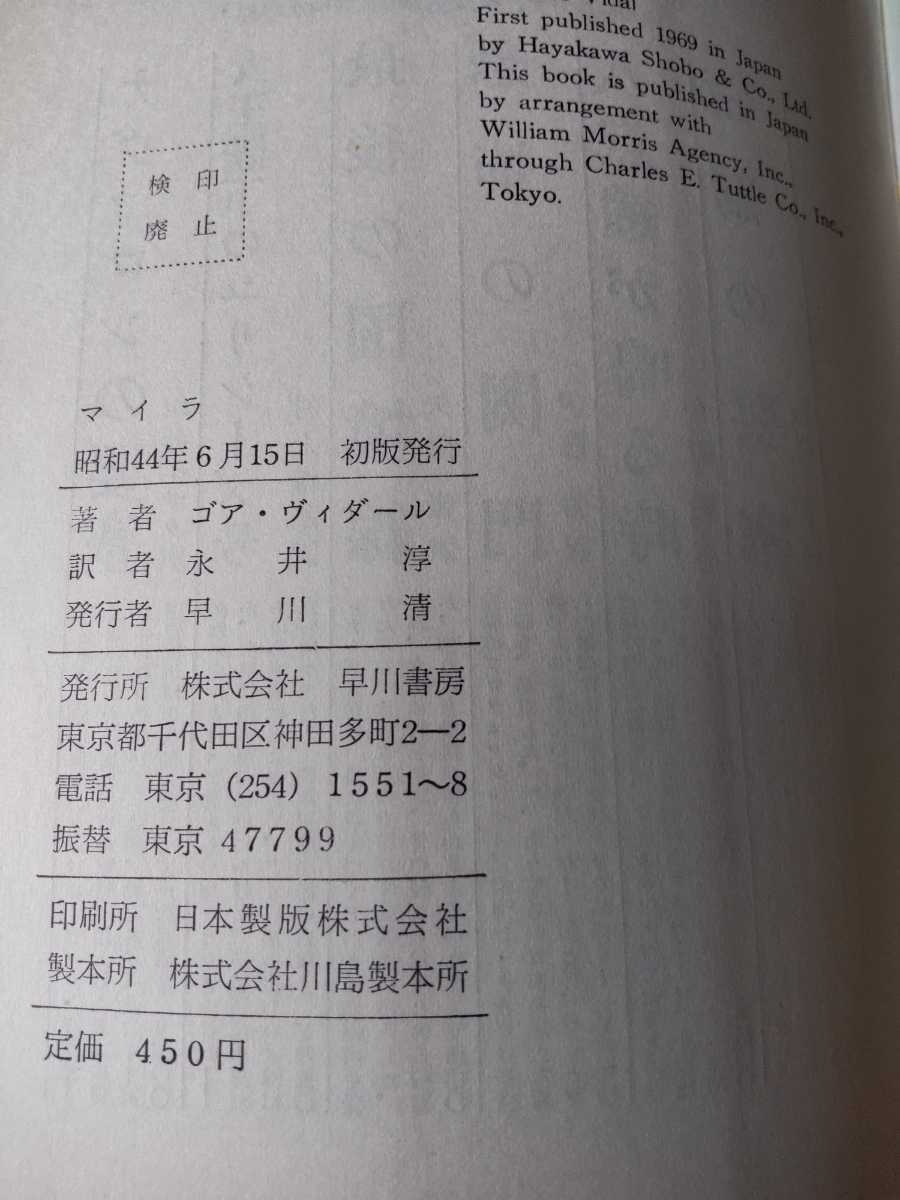 Vidal
First published 1969 in Japan
by Hayakawa Shobo & Co., Ltd.
This book is published in Japan
by arrangement with
William Morris Agency, Inc.,
through Charles E. Tuttle Co., Inc.,
Tokyo.
検印
廃止
マイラ
昭和44年6月15日 初版発行
著者 ゴア・ヴィダール
訳者 永井淳
発行者 早川清
発行所 株式会社 早川書房
東京都千代田区神田多町2―2
電話 東京 (254) 1551〜8
振替 東京 47799
印刷所 日本製版株式会社
製本所 株式会社川島製本所
定価 450円